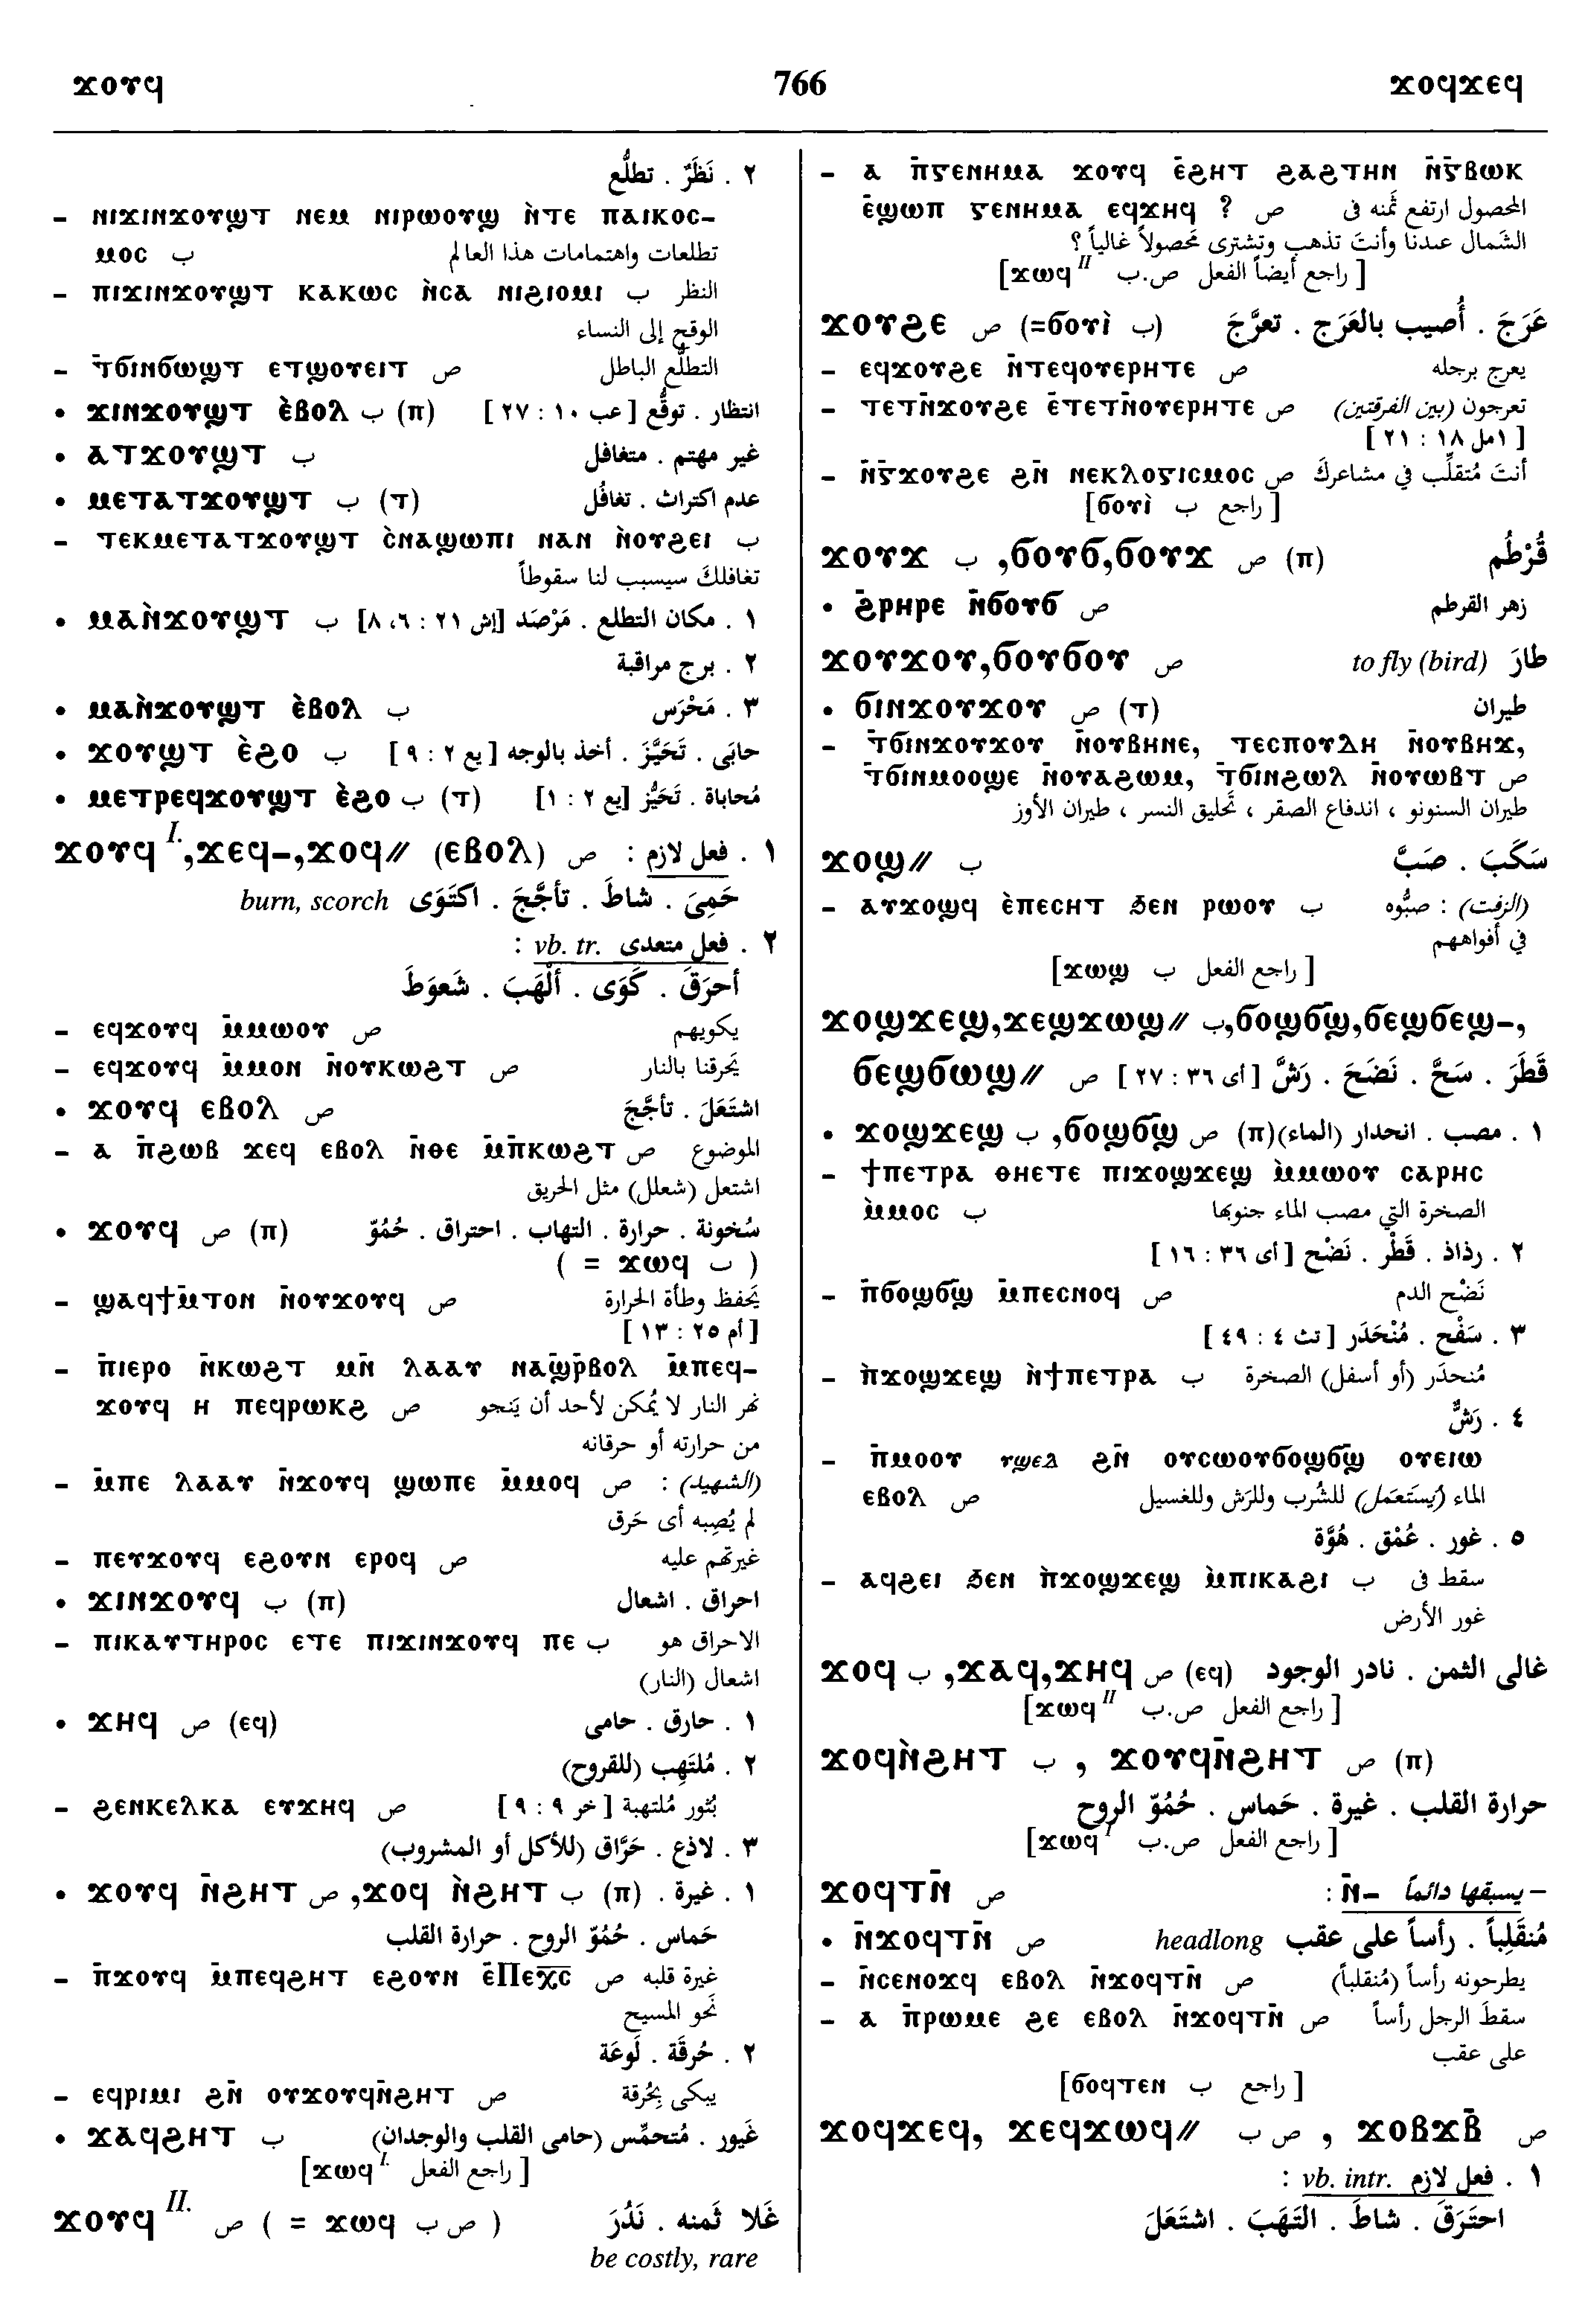 ϫⲟⲩϥ 766 ϫⲟϥϫⲉϥ
٢ . نَظَرٌ . تطلُّع
– ⲛⲓϫⲓⲛϫⲟⲩϣⲧ ⲛⲉⲙ ⲛⲓⲣⲱⲟⲩϣ ⲛ̀ⲧⲉ ⲡⲁⲓⲕⲟⲥ-
ⲙⲟⲥ ب تطلعات واهتمامات هذا العالم
– ⲡⲓϫⲓⲛϫⲟⲩϣⲧ ⲕⲁⲕⲱⲥ ⲛ̀ⲥⲁ ⲛⲓϩⲓⲟⲙⲓ ب النظر
الوقح إلى النساء
– ⲧ̄ϭⲓⲛϭⲱϣⲧ ⲉⲧϣⲟⲩⲉⲓⲧ ص التطلُّع الباطل
• ϫⲓⲛϫⲟⲩϣⲧ ⲉ̀ⲃⲟⲗ ب (ⲡ) انتظار . توقُّع [عب ١٠ : ٢٧]
• ⲁⲧϫⲟⲩϣⲧ ب غير مهتم . متغافل
• ⲙⲉⲧⲁⲧϫⲟⲩϣⲧ ب (ⲧ) عدم اكتراث . تغافُل
– ⲧⲉⲕⲙⲉⲧⲁⲧϫⲟⲩϣⲧ ⲥ̀ⲛⲁϣⲱⲡⲓ ⲛⲁⲛ ⲛ̀ⲟⲩϩⲉⲓ ب
تغافلكَ سيسبب لنا سقوطاً
• ⲙⲁⲛ̀ϫⲟⲩϣⲧ ب ١ . مكان التطلع . مَرْصَد [إش ٢١ : ٦، ٨]
٢ . برج مراقبة
• ⲙⲁⲛ̀ϫⲟⲩϣⲧ ⲉ̀ⲃⲟⲗ ب ٣ . مَحْرَس
• ϫⲟⲩϣⲧ ⲉ̀ϩⲟ ب حابَى . تَحَيَّزَ . أخذ بالوجه [يع ٢ : ٩]
• ⲙⲉⲧⲣⲉϥϫⲟⲩϣⲧ ⲉ̀ϩⲟ ب (ⲧ) مُحاباة . تَحَيُّز [يع ٢ : ١]
ϫⲟⲩϥ I. ,ϫⲉϥ-,ϫⲟϥ// (ⲉⲃⲟⲗ) ص ١ . فعل لازم :
حَمِىَ . شاطَ . تأجَّجَ . اكتَوَى burn, scorch
٢ . فعل متعدى vb. tr. :
أحرَقَ . كَوَى . ألْهَبَ . شَعوَطَ
– ⲉϥϫⲟⲩϥ ⲙ̄ⲙⲱⲟⲩ ص يكويهم
– ⲉϥϫⲟⲩϥ ⲙ̄ⲙⲟⲛ ⲛ̄ⲟⲩⲕⲱϩⲧ ص يَحرقنا بالنار
• ϫⲟⲩϥ ⲉⲃⲟⲗ ص اشتَعَلَ . تأجَّجَ
– ⲁ ⲡ̄ϩⲱⲃ ϫⲉϥ ⲉⲃⲟⲗ ⲛ̄ⲑⲉ ⲙ̄ⲡ̄ⲕⲱϩⲧ ص الموضوع
اشتعل (شعلل) مثل الحريق
• ϫⲟⲩϥ ص (ⲡ) سُخونة . حرارة . التهاب . احتراق . حُمُوّ
( ب ϫⲱϥ = )
– ϣⲁϥϯⲙ̄ⲧⲟⲛ ⲛ̄ⲟⲩϫⲟⲩϥ ص يَحفظ وطأة الحرارة
[أم ٢٥ : ١٣]
– ⲡ̄ⲓⲉⲣⲟ ⲛ̄ⲕⲱϩⲧ ⲙⲛ̄ ⲗⲁⲁⲩ ⲛⲁϣⲣ̄ⲃⲟⲗ ⲙ̄ⲡⲉϥ-
ϫⲟⲩϥ ⲏ ⲡⲉϥⲣⲱⲕϩ ص نهر النار لا يُمكن لأحد أن يَنجو
من حرارته أو حرقانه
– ⲙ̄ⲡⲉ ⲗⲁⲁⲩ ⲛ̄ϫⲟⲩϥ ϣⲱⲡⲉ ⲙ̄ⲙⲟϥ ص (الشهيد) :
لم يُصِبه أى حَرق
– ⲡⲉⲩϫⲟⲩϥ ⲉϩⲟⲩⲛ ⲉⲣⲟϥ ص غيرتهم عليه
• ϫⲓⲛϫⲟⲩϥ ب (ⲡ) احراق . اشعال
– ⲡⲓⲕⲁⲩⲧⲏⲣⲟⲥ ⲉⲧⲉ ⲡⲓϫⲓⲛϫⲟⲩϥ ⲡⲉ ب الاحراق هو
اشعال (النار)
• ϫⲏϥ ص (ⲉϥ) ١ . حارق . حامى
٢ . مُلتَهِب (للقروح)
– ϩⲉⲛⲕⲉⲗⲕⲁ ⲉⲩϫⲏϥ ص بُثور مُلتهبة [خر ٩ : ٩]
٣ . لاذع . حَرَّاق (للأكل أو المشروب)
• ϫⲟⲩϥ ⲛ̄ϩⲏⲧ ص ,ϫⲟϥ ⲛ̀ϩⲏⲧ ب (ⲡ) ١ . غيرة .
حَماس . حُمُوّ الروح . حرارة القلب
– ⲡ̄ϫⲟⲩϥ ⲙ̄ⲡⲉϥϩⲏⲧ ⲉϩⲟⲩⲛ ⲉ̄Ⲡⲉⲭ̅ⲥ̅ ص غيرة قلبه
نَحو المسيح
٢ . حُرقَة . لَوعَة
– ⲉϥⲣⲓⲙⲓ ϩⲛ̄ ⲟⲩϫⲟⲩϥⲛ̄ϩⲏⲧ ص يبكى بِحُرقة
• ϫⲁϥϩⲏⲧ ب غَيور . مُتحمِّس (حامى القلب والوجدان)
[ راجع الفعل ϫⲱϥ I. ]
ϫⲟⲩϥ II. ص ( = ϫⲱϥ ص ب ) غَلا ثَمنه . نَدُرَ
be costly, rare
– ⲁ ⲡ̄ⲅⲉⲛⲏⲙⲁ ϫⲟⲩϥ ⲉ̄ϩⲏⲧ ϩⲁϩⲧⲏⲛ ⲛ̄ⲅ̄ⲃⲱⲕ
ⲉ̄ϣⲱⲡ ⲅⲉⲛⲏⲙⲁ ⲉϥϫⲏϥ ? ص المحصول ارتفع ثَمنه فى
الشمال عندنا وأنتَ تذهب وتشترى مَحصولاً غالياً ؟
[ راجع أيضاً الفعل ص.ب ϫⲱϥ II ]
ϫⲟⲩϩⲉ ص (=ϭⲟⲩⲓ̀ ب) عَرَجَ . أُصيب بالعَرَج . تعرَّجَ
– ⲉϥϫⲟⲩϩⲉ ⲛ̄ⲧⲉϥⲟⲩⲉⲣⲏⲧⲉ ص يعرج برجله
– ⲧⲉⲧⲛ̄ϫⲟⲩϩⲉ ⲉ̄ⲧⲉⲧⲛ̄ⲟⲩⲉⲣⲏⲧⲉ ص تعرجون (بين الفرقتين)
[ ١مل ١٨ : ٢١ ]
– ⲛ̄ⲅ̄ϫⲟⲩϩⲉ ϩⲛ̄ ⲛⲉⲕⲗⲟⲅⲓⲥⲙⲟⲥ ص أنتَ مُتقلِّب في مشاعركَ
[ راجع ب ϭⲟⲩⲓ̀ ]
ϫⲟⲩϫ ب ,ϭⲟⲩϭ,ϭⲟⲩϫ ص (ⲡ) قُرْطُم
• ϩ̄ⲣⲏⲣⲉ ⲛ̄ϭⲟⲩϭ ص زهر القرطم
ϫⲟⲩϫⲟⲩ,ϭⲟⲩϭⲟⲩ ص to fly (bird) طارَ
• ϭⲓⲛϫⲟⲩϫⲟⲩ ص (ⲧ) طيران
– ⲧ̄ϭⲓⲛϫⲟⲩϫⲟⲩ ⲛ̄ⲟⲩⲃⲏⲛⲉ, ⲧⲉⲥⲡⲟⲩⲇⲏ ⲛ̄ⲟⲩⲃⲏϫ,
ⲧ̄ϭⲓⲛⲙⲟⲟϣⲉ ⲛ̄ⲟⲩⲁϩⲱⲙ, ⲧ̄ϭⲓⲛϩⲱⲗ ⲛ̄ⲟⲩⲱⲃⲧ ص
طيران السنونو ، اندفاع الصقر ، تَحليق النسر ، طيران الأوز
ϫⲟϣ// ب سَكَبَ . صَبَّ
– ⲁⲩϫⲟϣϥ ⲉ̀ⲡⲉⲥⲏⲧ ϧⲉⲛ ⲣⲱⲟⲩ ب (الزفت) : صبُّوه
في أفواههم
[ راجع الفعل ب ϫⲱϣ ]
ϫⲟϣϫⲉϣ,ϫⲉϣϫⲱϣ// ب,ϭⲟϣϭϣ̄,ϭⲉϣϭⲉϣ-,
ϭⲉϣϭⲱϣ// ص قَطَرَ . سَحَّ . نَضَحَ . رَشَّ [أى ٣٦ : ٢٧]
• ϫⲟϣϫⲉϣ ب ,ϭⲟϣϭϣ̄ ص (ⲡ) ١ . مصب . انحدار (الماء)
– ϯⲡⲉⲧⲣⲁ ⲑⲏⲉⲧⲉ ⲡⲓϫⲟϣϫⲉϣ ⲙ̀ⲙⲱⲟⲩ ⲥⲁⲣⲏⲥ
ⲙ̀ⲙⲟⲥ ب الصخرة التي مصب الماء جنوبها
٢ . رذاذ . قَطْر . نَضْح [أى ٣٦ : ١٦]
– ⲡ̄ϭⲟϣϭϣ̄ ⲙ̄ⲡⲉⲥⲛⲟϥ ص نَضْح الدم
٣ . سَفْح . مُنْحَدَر [تث ٤ : ٤٩]
– ⲡ̀ϫⲟϣϫⲉϣ ⲛ̀ϯⲡⲉⲧⲣⲁ ب مُنحدَر (أو أسفل) الصخرة
٤ . رَشٌّ
– ⲡ̄ⲙⲟⲟⲩ ϩⲛ̄ ⲟⲩⲥⲱⲟⲩϭⲟϣϭϣ̄ ⲟⲩⲉⲓⲱ
ⲉⲃⲟⲗ ص الماء (يُستَعمَل) للشُرب وللرَش وللغسيل
٥ . غور . عُمْق . هُوَّة
– ⲁϥϩⲉⲓ ϧⲉⲛ ⲡ̀ϫⲟϣϫⲉϣ ⲙ̀ⲡⲓⲕⲁϩⲓ ب سقط فى
غور الأرض
ϫⲟϥ ب ,ϫⲁϥ,ϫⲏϥ ص (ⲉϥ) غالى الثمن . نادر الوجود
[ راجع الفعل ص.ب ϫⲱϥ II ]
ϫⲟϥⲛ̀ϩⲏⲧ ب , ϫⲟⲩϥⲛ̄ϩⲏⲧ ص (ⲡ)
حرارة القلب . غيرة . حَماس . حُمُوّ الروح
[ راجع الفعل ص.ب ϫⲱϥ I ]
ϫⲟϥⲧⲛ̄ ص – يسبقها دائماً ⲛ̄- :
• ⲛ̄ϫⲟϥⲧⲛ̄ ص headlong مُنقَلِباً . رأساً على عقب
– ⲛ̄ⲥⲉⲛⲟϫϥ ⲉⲃⲟⲗ ⲛ̄ϫⲟϥⲧⲛ̄ ص يطرحونه رأساً (مُنقلباً)
– ⲁ ⲡ̄ⲣⲱⲙⲉ ϩⲉ ⲉⲃⲟⲗ ⲛ̄ϫⲟϥⲧⲛ̄ ص سقطَ الرجل رأساً
على عقب
[ راجع ب ϭⲟϥⲧⲉⲛ ]
ϫⲟϥϫⲉϥ, ϫⲉϥϫⲱϥ// ص ب , ϫⲟⲃϫⲃ̄ ص
١ . فعل لازم vb. intr. :
احتَرَقَ . شاطَ . التَهَبَ . اشتَعَلَ